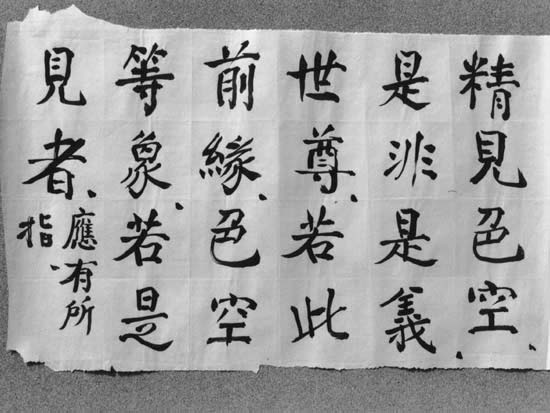 精見色空、
是非是義、
世尊、若此
前緣、色空
等象、若是
見者、應有所
指、